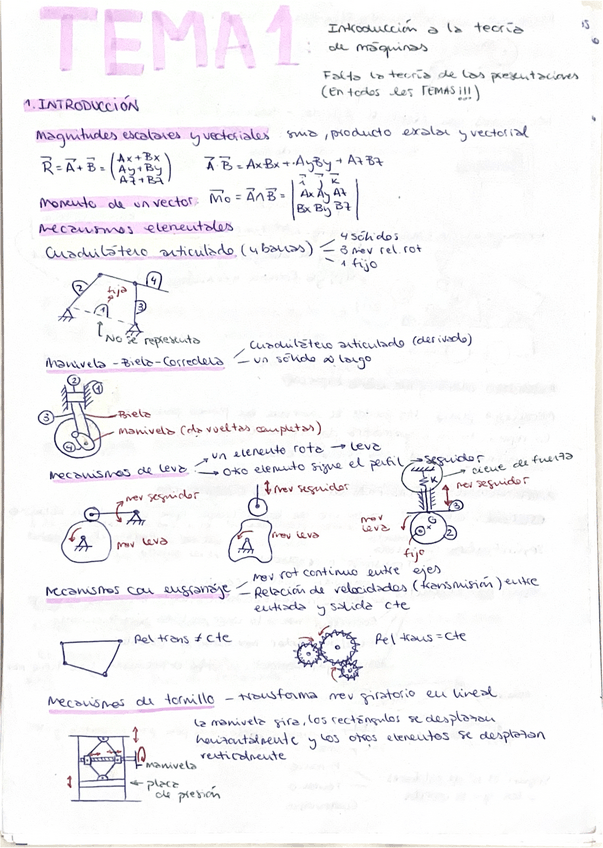 TEMA 1:
Introducción a la teoría
de máquinas
Falta la teoría de las presentaciones
(En todos los TEMAS!!!)
1. INTRODUCCIÓN
Magnitudes escalares y vectoriales suma, producto escalar y vectorial
R = A + B = (Ax+Bx
Ay+By
Az+Bz) A · B = AxBx + AyBy + AzBz
Momento de un vector: Mo = A ∧ B = | i j k
Ax Ay Az
Bx By Bz |
Mecanismos elementales
Cuadrilátero articulado (4 barras)
4 sólidos
3 mov rel. rot
1 fijo
2
fija
4
1
3
No se representa
Manivela - Biela - Corredera
Cuadrilátero articulado (derivado)
un sólido ∞ largo
2
1
3
Biela
Manivela (da vueltas completas)
4
Mecanismos de leva
un elemento rota → leva
Otro elemento sigue el perfil → seguidor
cierre de fuerza
K
mov seguidor
mov leva
mov seguidor
mov leva
mov seguidor
3
mov
leva
G
2
fijo
Mecanismos con engranaje
mov rot continuo entre ejes
Relación de velocidades (transmisión) entre
entrada y salida cte
Rel trans ≠ cte
Rel trans = cte
Mecanismos de tornillo - transforma mov giratorio en lineal
la manivela gira, los rectángulos se desplazan
horizontalmente y los otros elementos se desplazan
verticalmente
manivela
placa
de presión